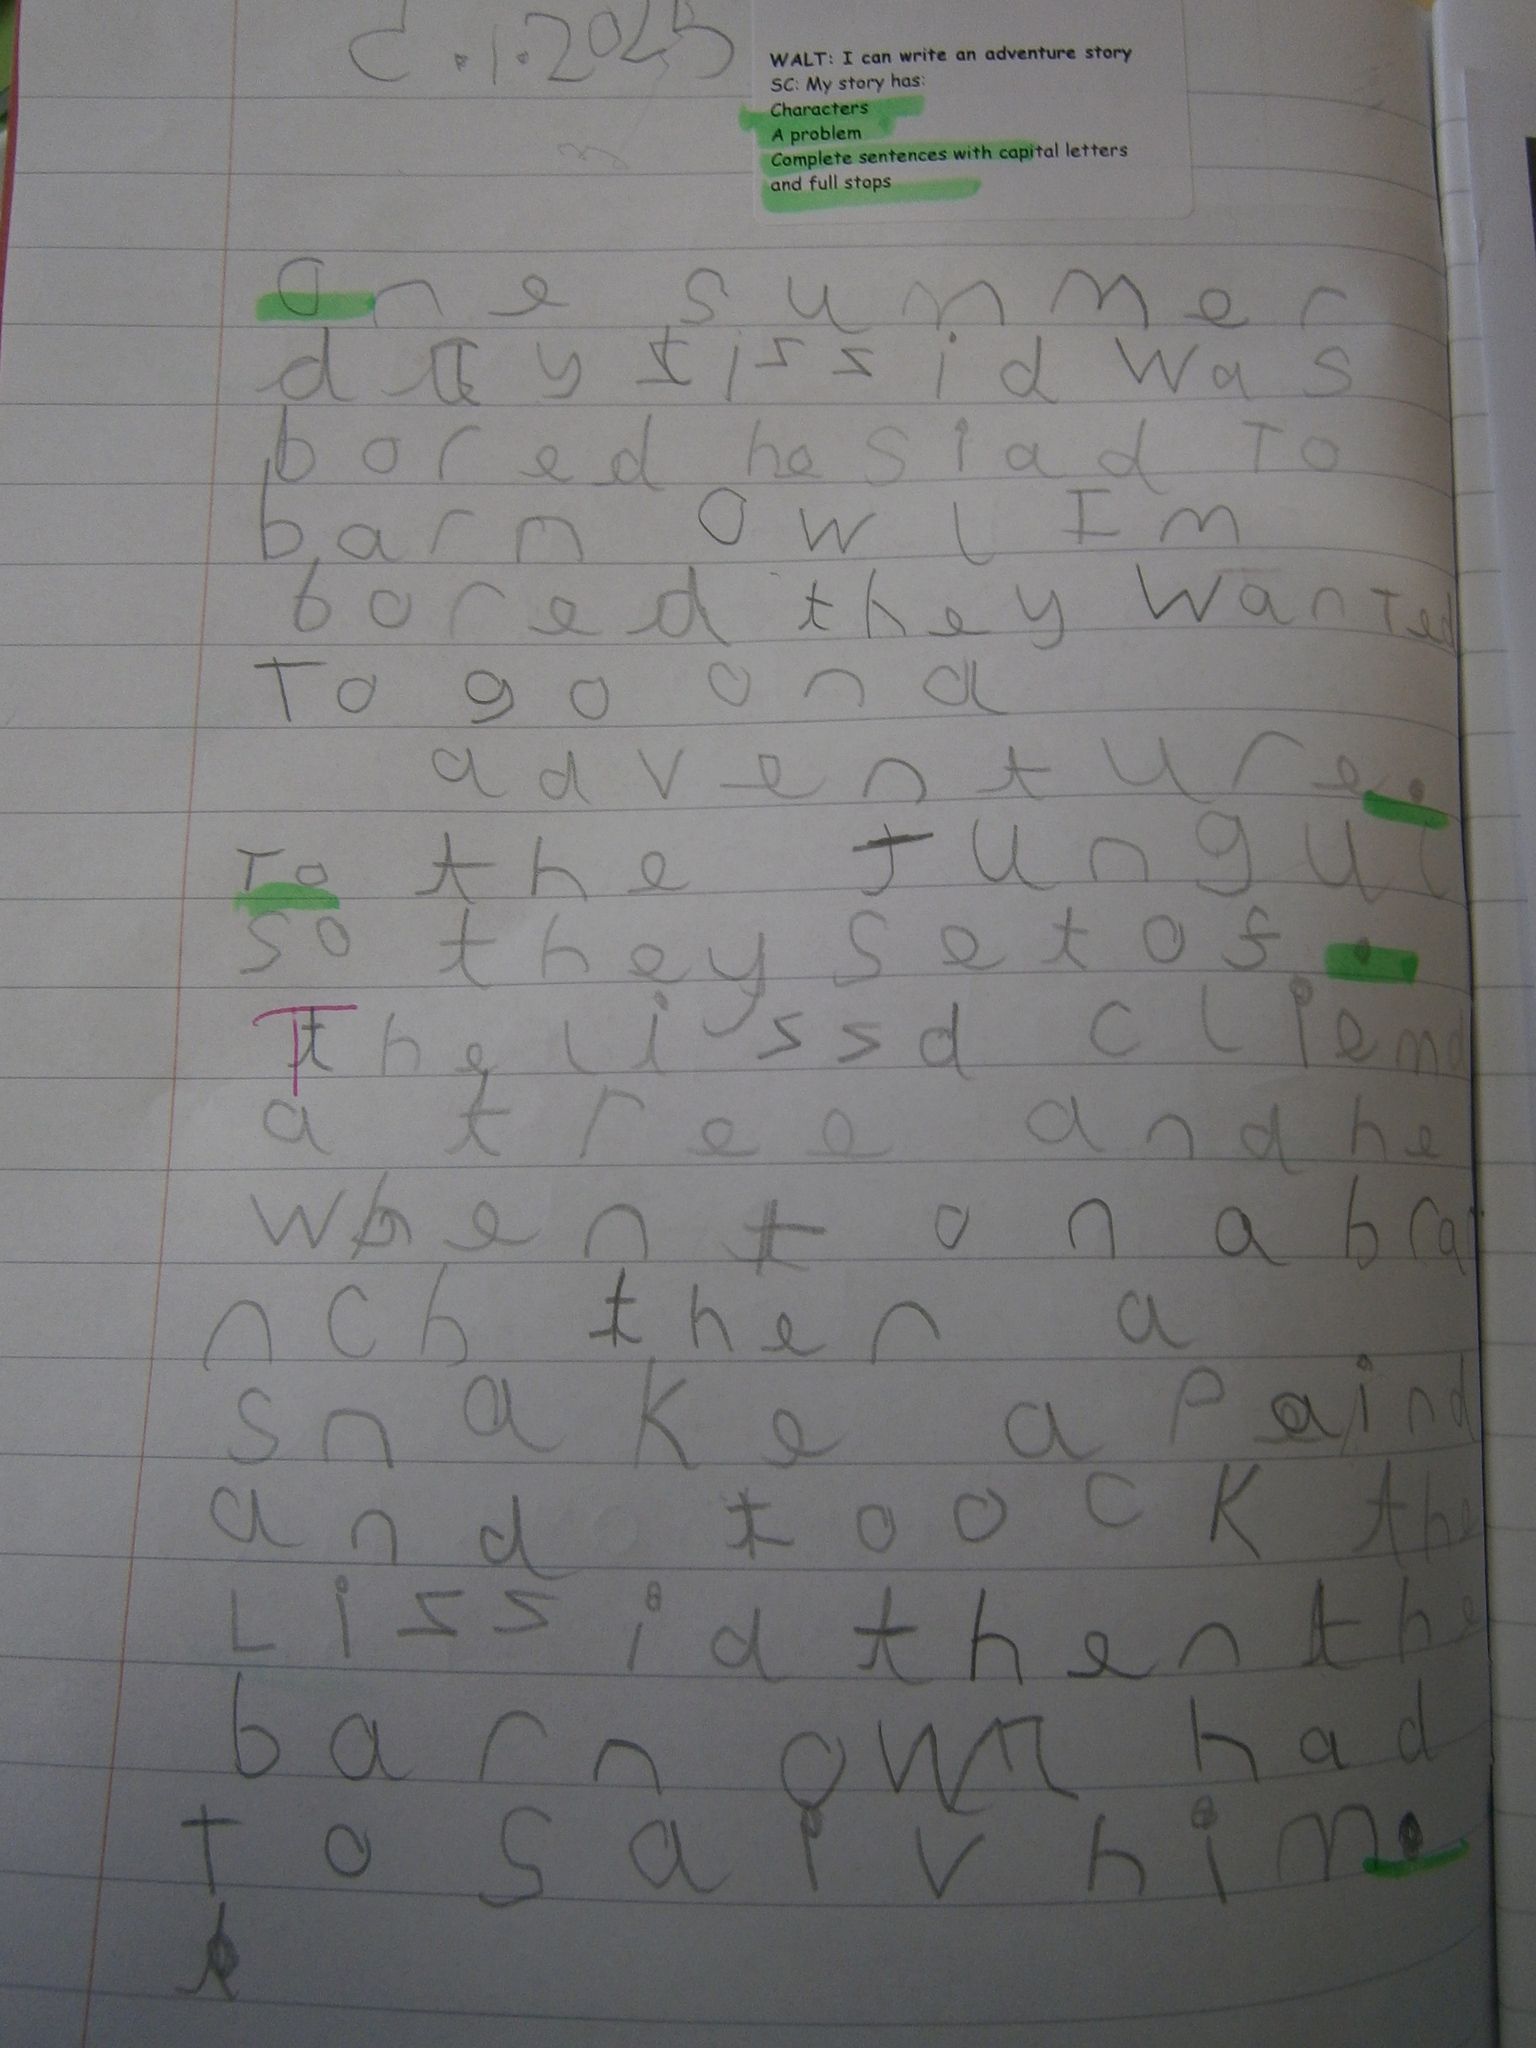 .1.2025
WALT: I can write an adventure story
SC: My story has:
Characters
A problem
Complete sentences with capital letters
and full stops
One summer
day lissid was
bored he siad To
barn owl Im
bored they wanTed
To go on a
adventure.
To the Jungul
so they set of.
The lissd cliemd
a tree and he
whent on a bra
nch then a
snake apaind
and toock the
Lissid then the
barn owl had
To saiv him.